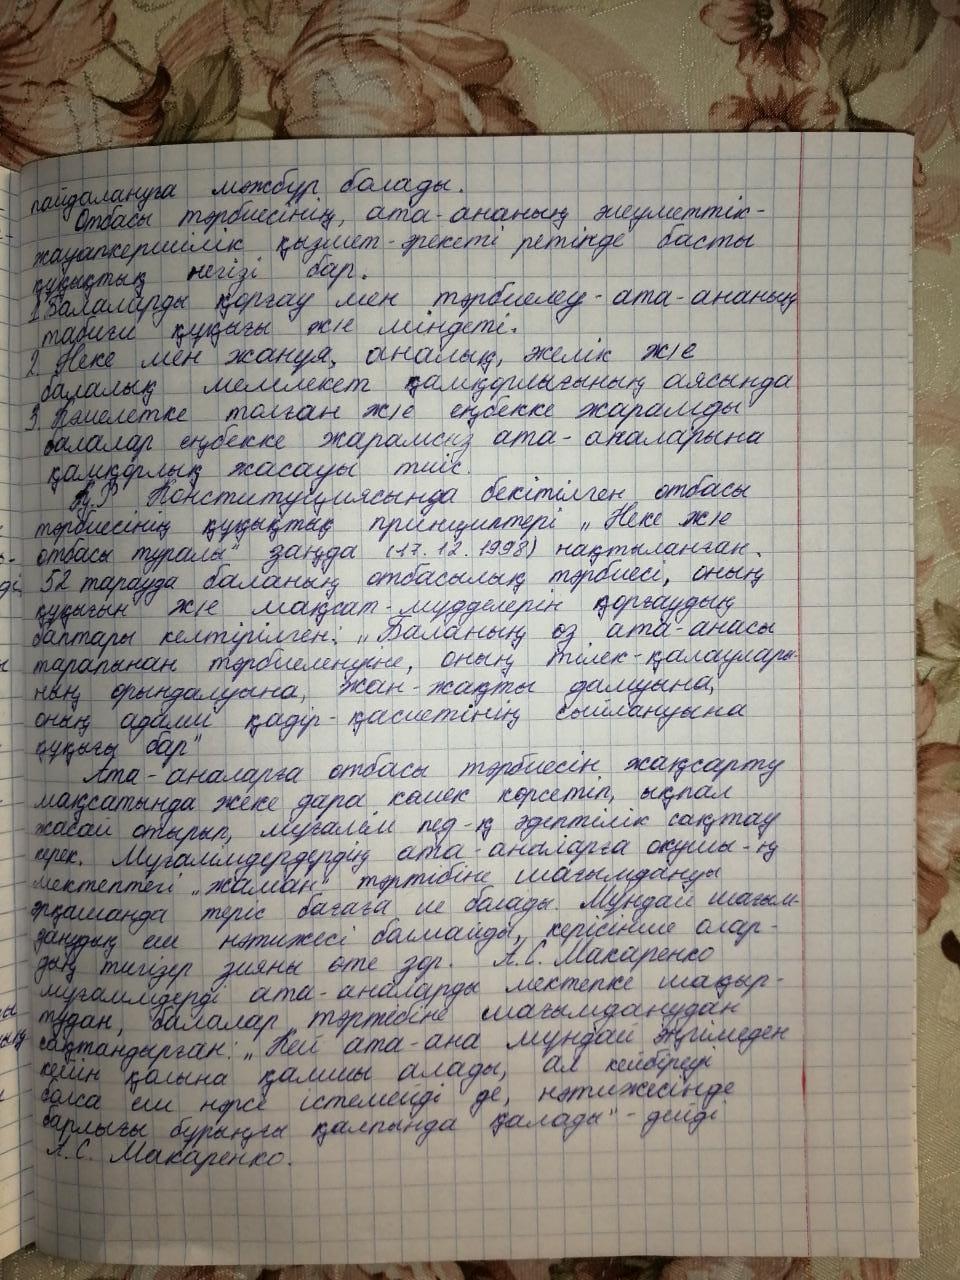 пайдалануға мәжбүр болады.
Отбасы тәрбиесінің, ата-ананың әлеуметтік-
жауапкершілік қызмет-әрекеті ретінде басты
құқықтық негізі бар.
1. Балаларды қорғау мен тәрбиелеу - ата-ананың
табиғи құқығы және міндеті.
2. Неке мен жанұя, аналық, әкелік ж/е
балалық мемлекет қамқорлығының аясында
3. Кәмелетке толған ж/е еңбекке жарамды
балалар еңбекке жарамсыз ата-аналарына
қамқорлық жасауы тиіс.
ҚР Конституциясында бекітілген отбасы
тәрбиесінің құқықтық принциптері „Неке ж/е
отбасы туралы" заңда (17.12.1998) нақтыланған.
52 тарауда баланың отбасылық тәрбиесі, оның
құқығын ж/е мақсат-мүдделерін қорғаудың
баптары келтірілген: „Баланың өз ата-анасы
тарапынан тәрбиеленуіне, оның тілек-қалаулары-
ның орындалуына, жан-жақты дамуына,
оның адами қадір-қасиетінің сыйлануына
құқығы бар"
Ата-аналарға отбасы тәрбиесін жақсарту
мақсатында жеке дара көмек көрсетіп, ықпал
жасай отырып, мұғалім пед-қ әдептілік сақтау
керек. Мұғалімдердердің ата-аналарға оқушы-ң
мектептегі „жаман" тәртібіне шағымдануы
әрқашанда теріс бағаға ие болады. Мұндай шағым-
данудың еш нәтижесі болмайды, керісінше олар-
дың тигізер зияны өте зор. А.С. Макаренко
мұғалімдерді ата-аналарды мектепке шақыр-
тудан, балалар тәртебіне шағымданудан
сақтандырған: „Кей ата-ана мұндай әңгімеден
кейін қолына қамшы алады, ал кейбіреуі
болса еш нәрсе істемейді де, нәтижесінде
барлығы бұрынғы қалпында қалады" - дейді
А.С. Макаренко.